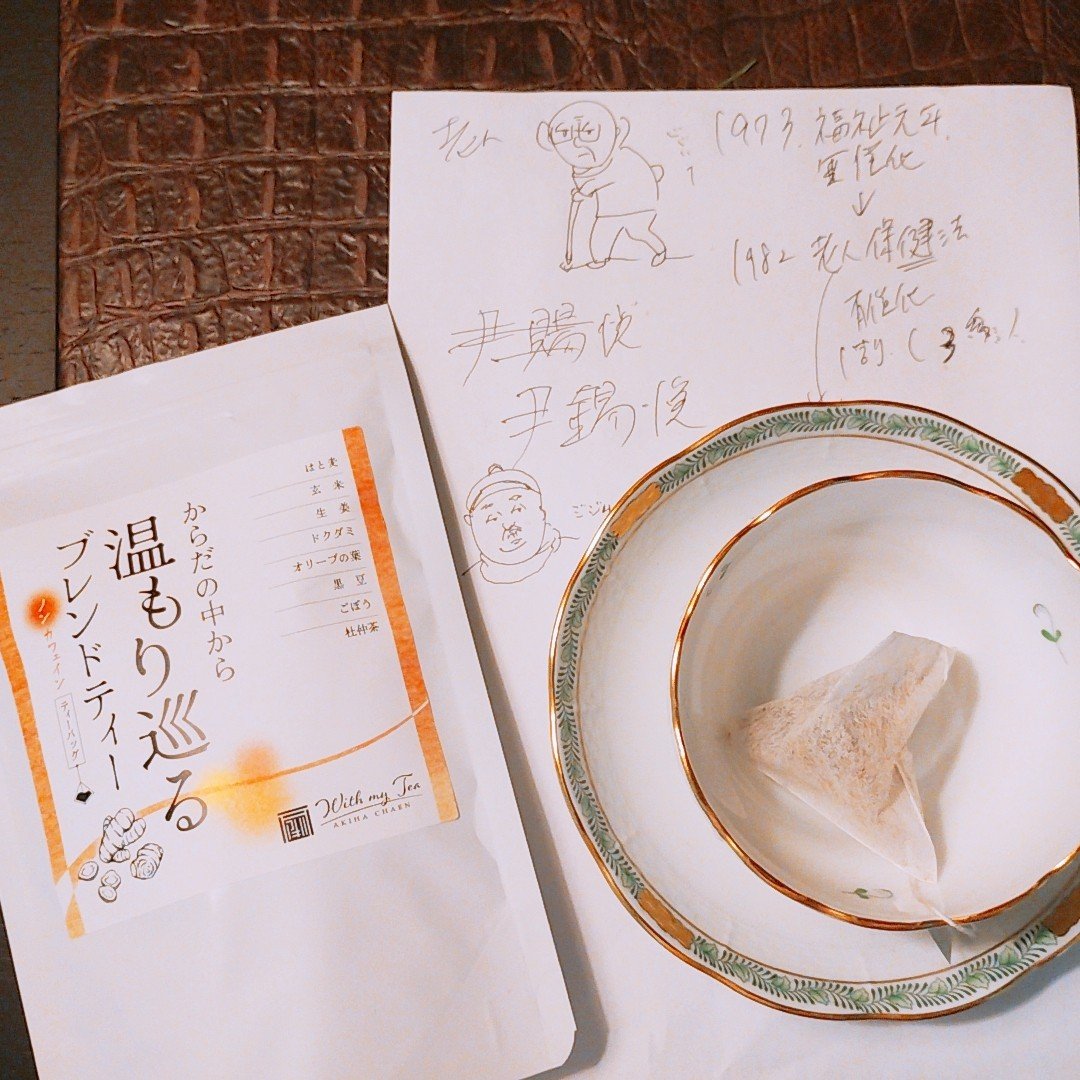 老人
1973 福祉元年
無償化
↓
1982 老人保健法
有償化
1割 (3割)
はと麦
玄米
生姜
ドクダミ
オリーブの葉
黒豆
ごぼう
杜仲茶
からだの中から
温もり巡る
ブレンドティー
ノンカフェイン
ティーバッグ
With my Tea
AKIHA CHAEN